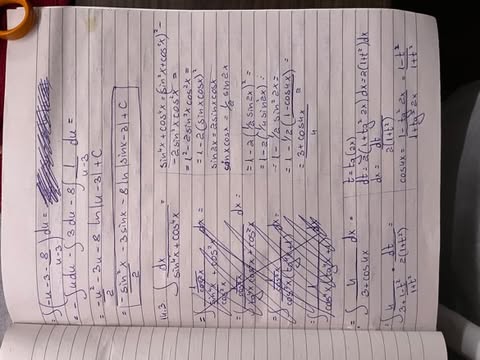 = ∫(-u-3-8/(u-3))du =
= -∫udu-∫3du-8∫1/(u-3) du =
= -u²/2 -3u-8 ln|u-3|+C
= -sin²x/2 -3sinx-8ln|sinx-3|+C
14.3. ∫dx/(sin⁴x+cos⁴x) =
= ∫ 4/(3+cos4x) dx =
= ∫ 4/(3+(1-t²)/(1+t²)) · dt/(2(1+t²))
sin⁴x+cos⁴x=(sin²x+cos²x)²-
-2sin²xcos²x =
= 1²-2sin²xcos²x =
= 1-2(sinxcosx)²
sin2x=2sinxcosx
sinxcosx=1/2 sin2x
= 1-2(1/2 sin2x)² =
= 1-2(1/4 sin²2x) =
= 1-1/2 sin²2x =
= 1-1/2·(1-cos4x)/2 =
= (3+cos4x)/4
t=tg(2x)
dt=2(1+tg²2x)dx=2(1+t²)dx
dx = dt/(2(1+t²))
cos4x = (1-tg²2x)/(1+tg²2x) = (1-t²)/(1+t²)